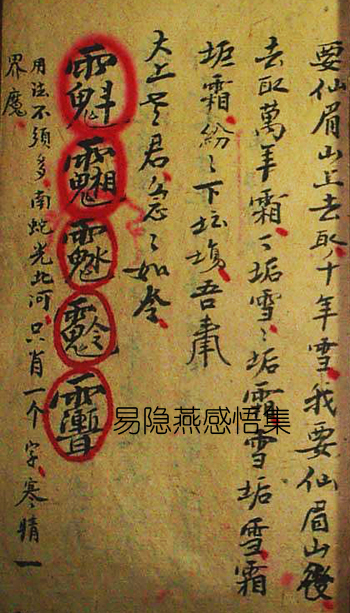 要仙眉山上去取千年雪我要仙眉山後
去取萬年霜〻垢雪〻垢霜雪垢雪霜
垢霜紛〻下坛塲吾奉
大上老君急〻如令
用法不須多南蛇光北河只肖一个字寒精一
界魔
易隐燕感悟集